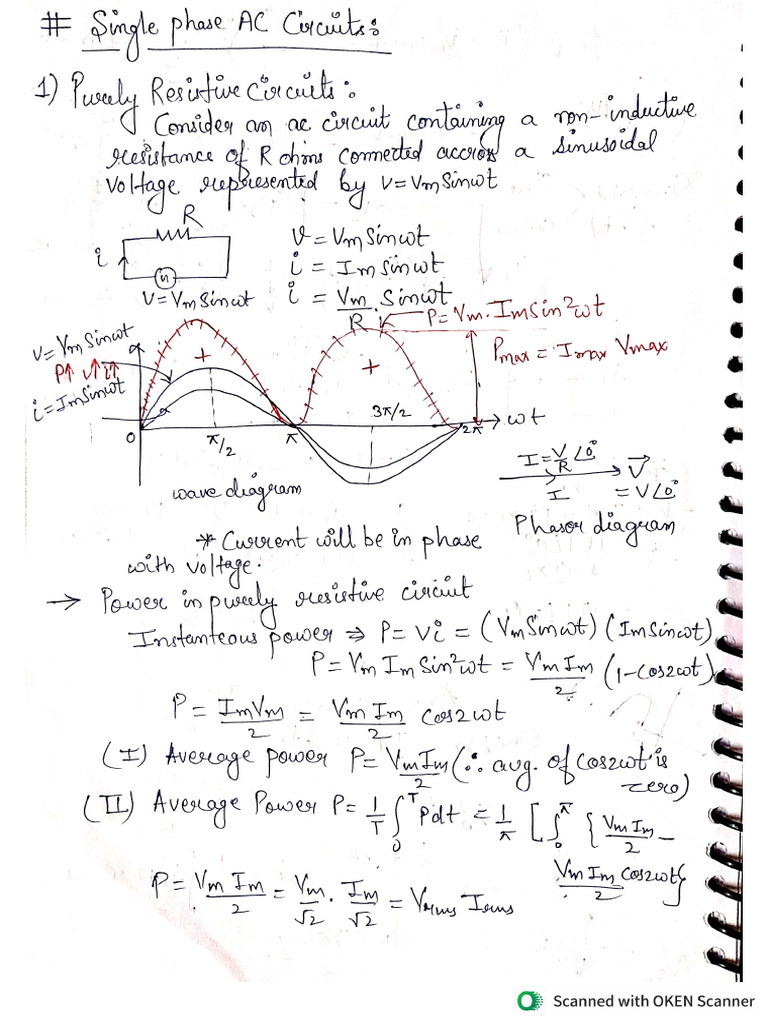 # Single phase AC Circuits:
1) Purely Resistive Circuits:
Consider an ac circuit containing a non-inductive
resistance of R ohms connected accross a sinusoidal
voltage represented by v=VmSinωt
R
i
V=VmSinωt
v=VmSinωt
i = ImSinωt
i = Vm/R Sinωt
P=Vm.ImSin²ωt
Pmax = Imax Vmax
v=VmSinωt
P↑ v↑ i↑
i=ImSinωt
+
+
0
π/2
π
3π/2
2π
ωt
wave diagram
I=V/R∠0°
V⃗
I
=V∠0°
Phasor diagram
* Current will be in phase
with voltage.
→ Power in purely resistive circuit
Instanteous power ⇒ P= Vi = (VmSinωt) (ImSinωt)
P=VmImSin²ωt = VmIm/2 (1-Cos2ωt)
P = ImVm/2 = VmIm/2 Cos2ωt
(I) Average power P= VmIm/2 (∴ avg. of Cos2ωt is
zero)
(II) Average Power P= 1/T ∫₀ᵀ Pdt = 1/π [∫₀^π { VmIm/2 –
VmIm/2 Cos2ωt}
P = VmIm/2 = Vm/√2 . Im/√2 = Vrms Irms
Scanned with OKEN Scanner